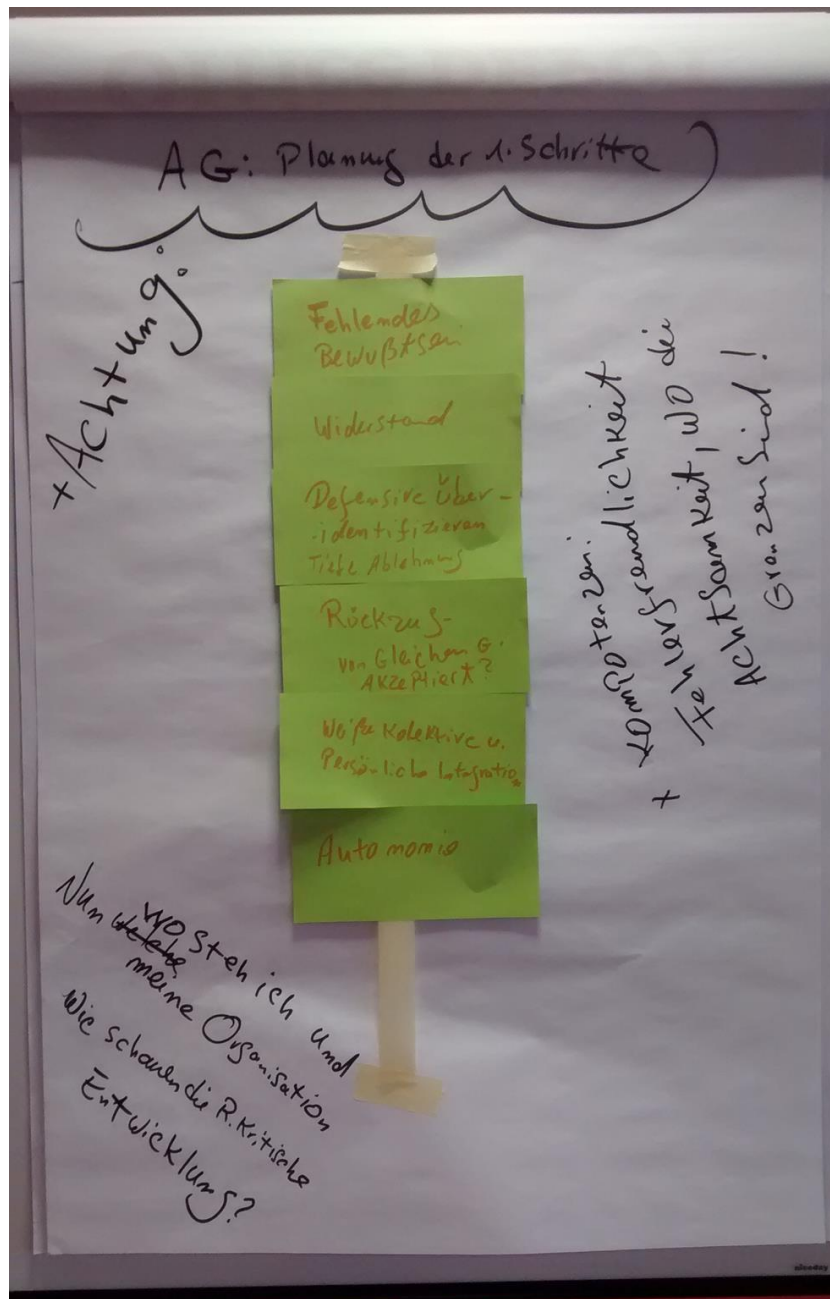 AG: Planung der 1. Schritte
+ Achtung:
Fehlendes
Bewußtsein
Widerstand
Defensive Über-
identifizieren
Tiefe Ablehnung
Rückzug-
von Gleichen G.
Akzeptiert?
Weiße Kolektive u.
Persönliche Integration
Autonomie
+ Kompotenzen:
Fehlerfreundlichkeit
Achtsamkeit, wo die
Grenzen sind!
Nun wo steh ich und
meine Organisation
Wie schauen die R.Kritische
Entwicklung?
nicoday